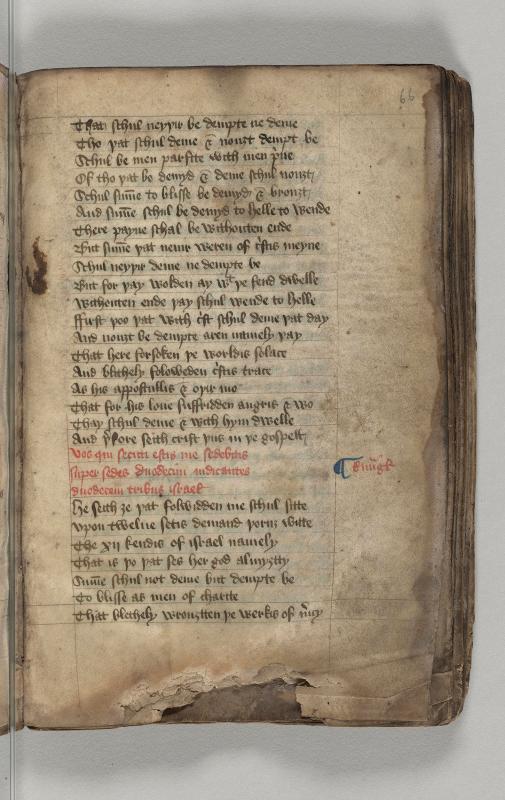 66
That schul neyþir be dempte ne deme
Tho þat schul deme & nouȝt dempt be
Schul be men parfite with men
Of tho þat be demyd & deme schul nouȝt
Schul sūme to blisse be demyd & brouȝt
And sūme schul be demyd to helle to wende
There payne schal be withouten ende
But sūme þat neuir weren of c̄stis meyne
Schul neyþir deme ne dempte be
But for þay wolden ay wͭ þe fend dwelle
Withouten ende þay schul wende to helle
ffirst þoo þat with c̄st schul deme þat day
And nouȝt be dempte aren namely þay
That here forsoken þe worldis solace
And blethely foloweden c̄stis trace
As his appostillis & oþir mo
That for his loue suffridden angris & wo
Thay schul deme & with hym dwelle
And þ̄fore seith crist þus in þe gospell
Vos qui secuti estis me sedebitis
super sedes duodecim iudicantes
duodecem tribus israel
He seith ȝe þat folwidden me schul sitte
vpon twelue setis demand þoruȝ witte
The xii kendis of israel namely
That is þo þat ses her god almyȝtty
Sūme schul not deme but dempte be
To blisse as men of charite
That blethely wrouȝtten þe werkis of m̄cy